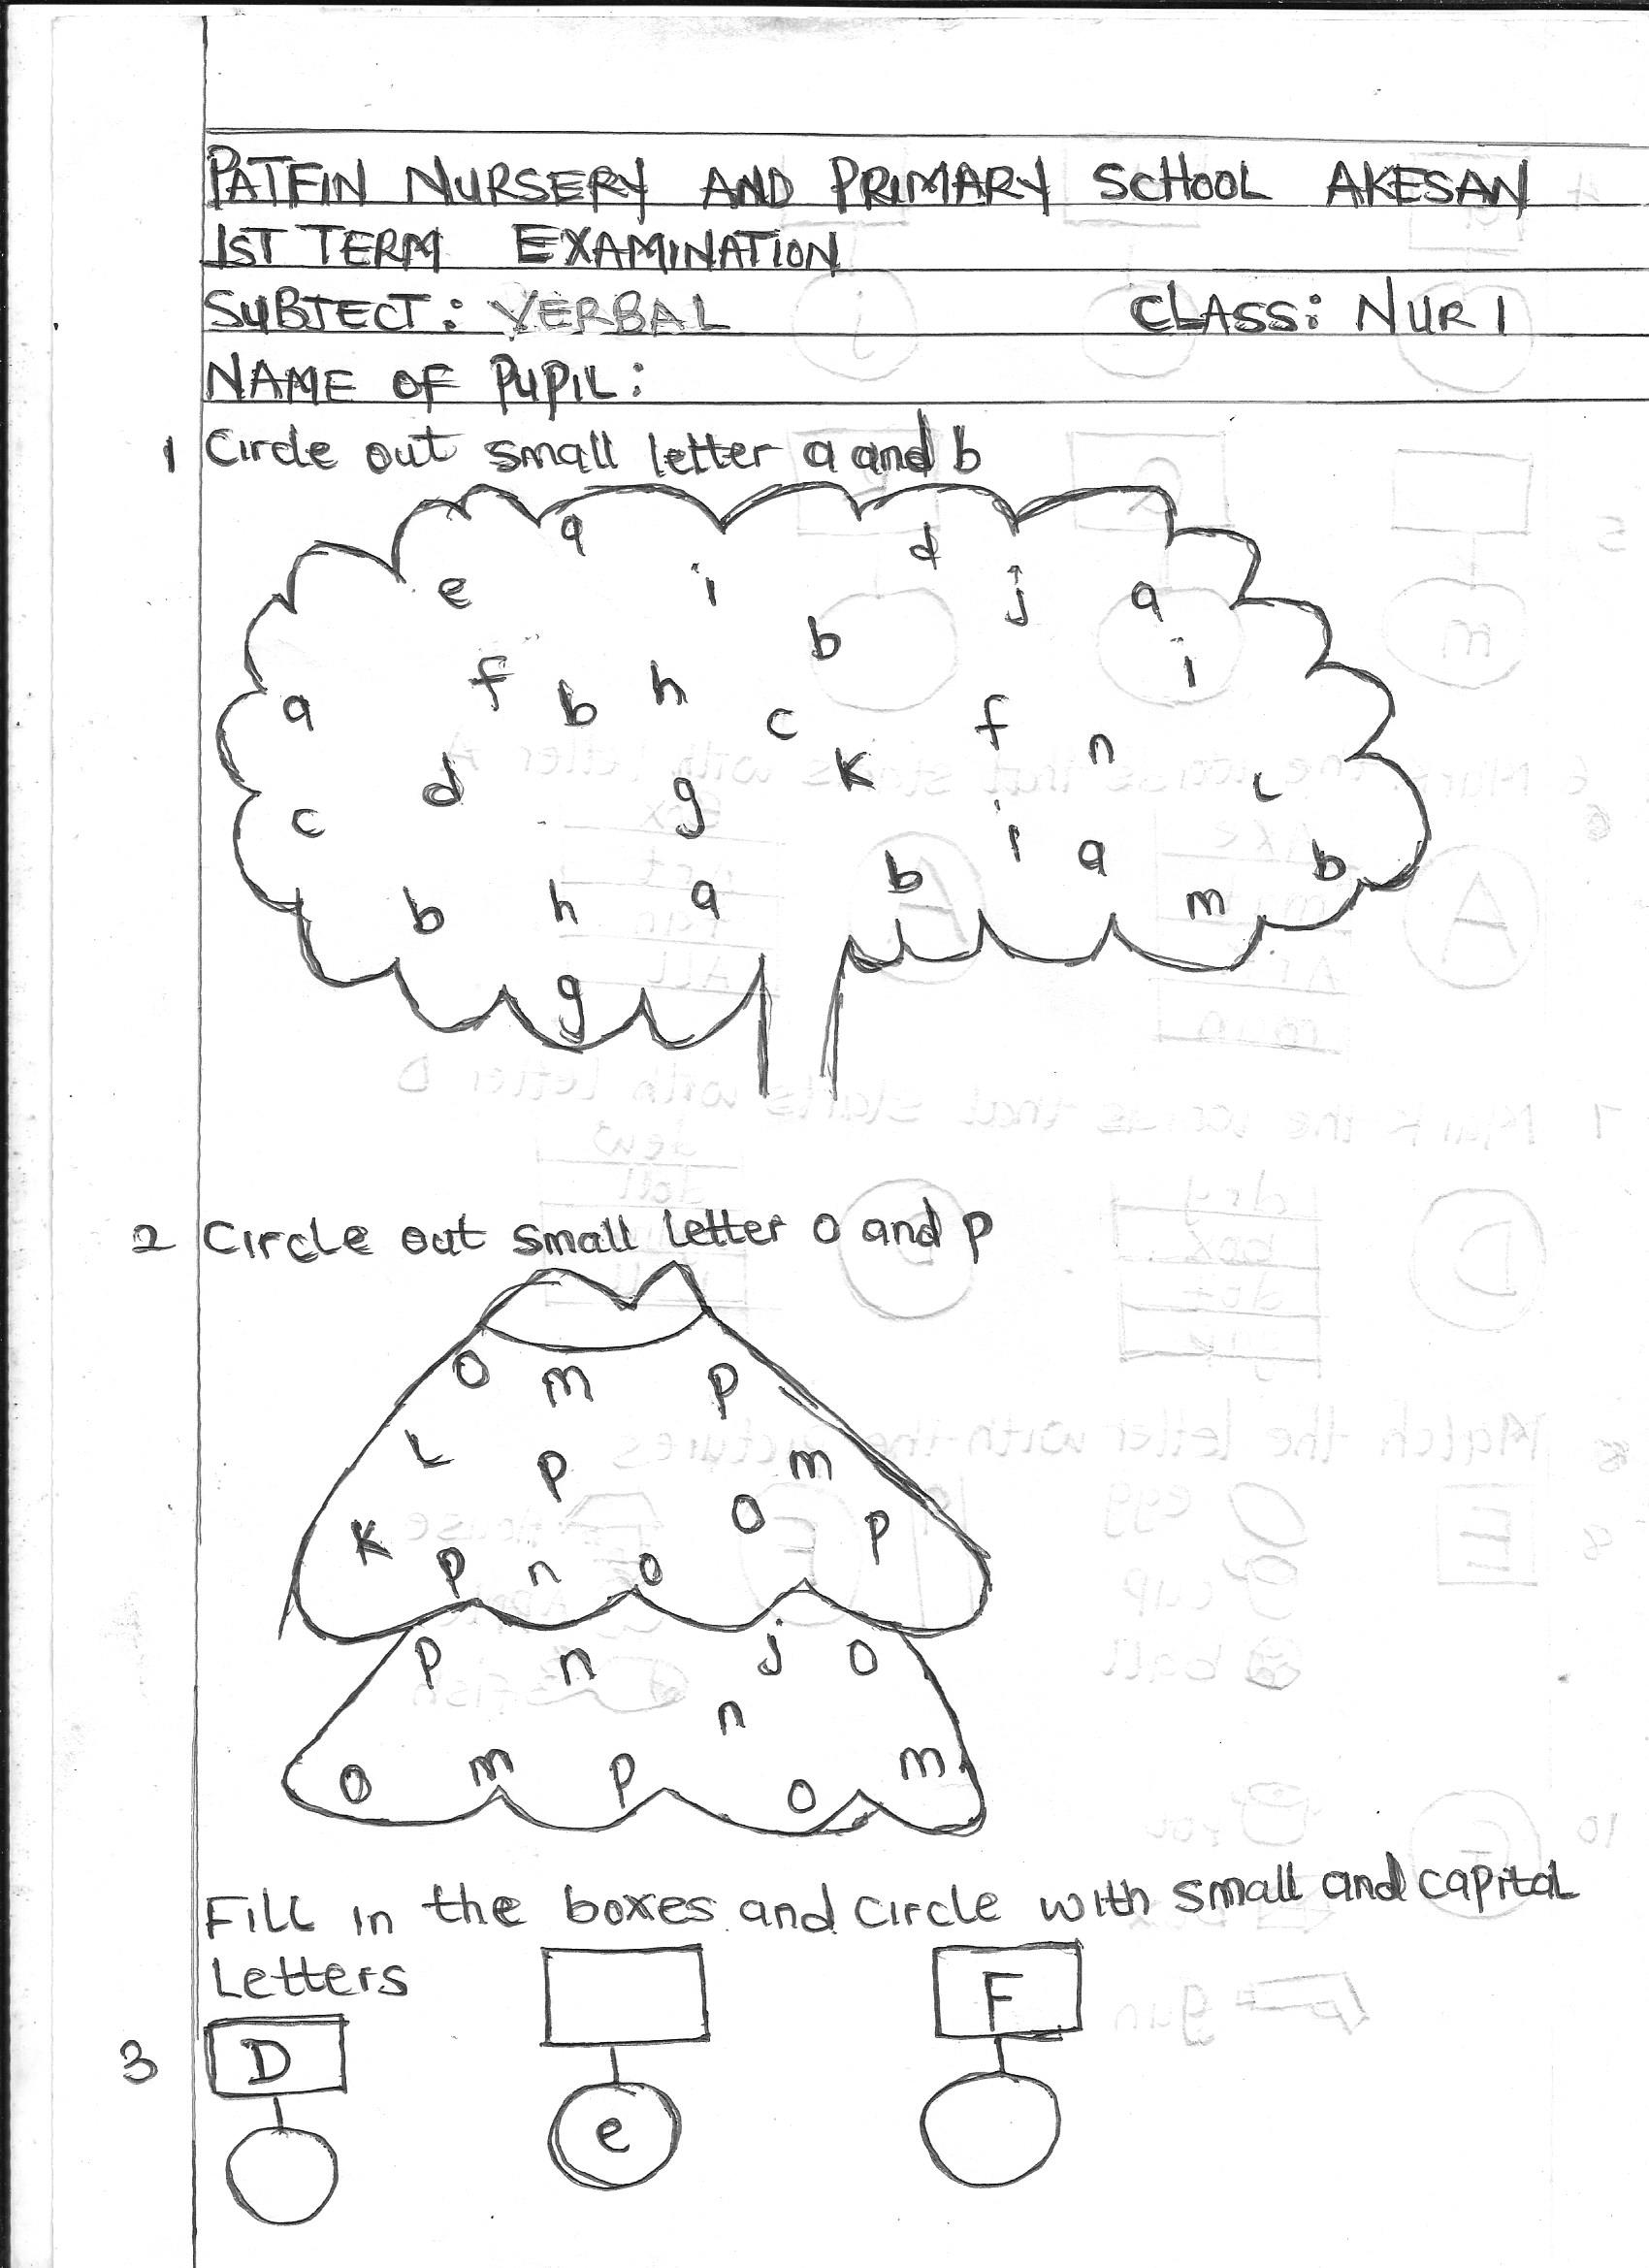 PATFIN NURSERY AND PRIMARY SCHOOL AKESAN
1ST TERM EXAMINATION
SUBJECT: VERBAL CLASS: NUR 1
NAME OF PUPIL:
1 Circle out small letter a and b
a d
e i j a
b
f h i
a b c f
n
d g K L
c i a
b h a b m b
g
2 Circle out small letter o and p
O m p
L p m
O
K p n o p
p n j O
n
O m p O m
Fill in the boxes and circle with small and capital
Letters
F
3 D
e